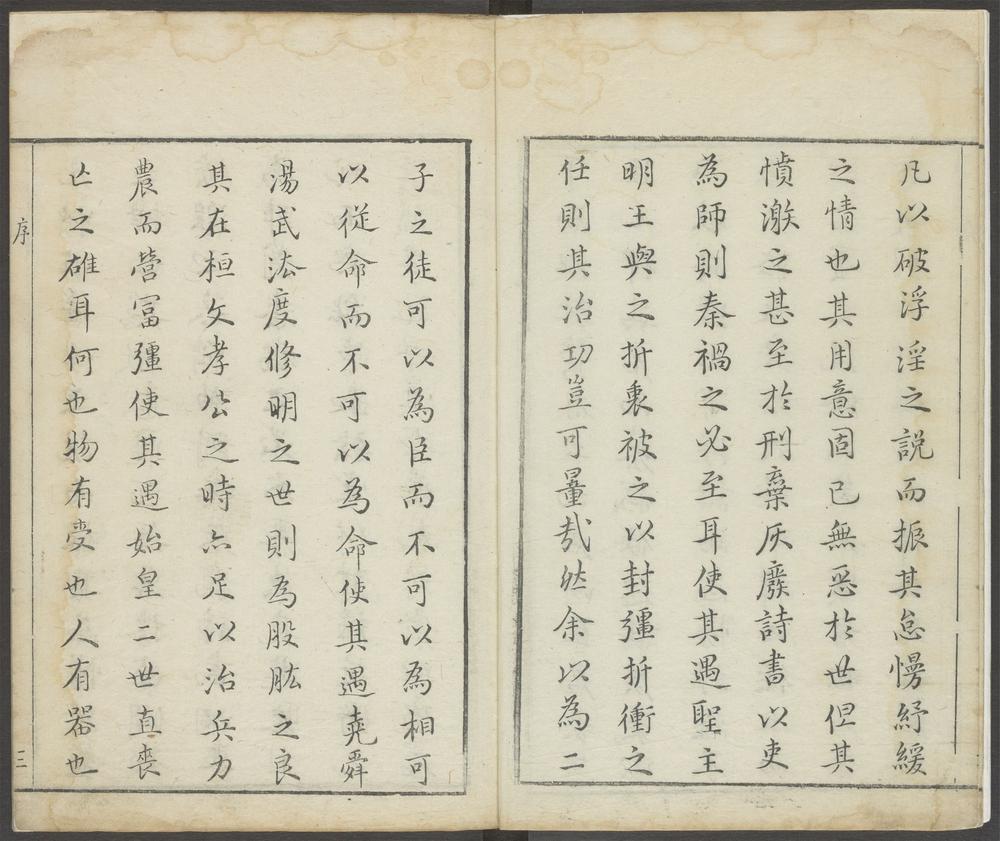 凡以破浮淫之說而振其怠慢紓緩
之情也其用意固已無惡於世但其
憤激之甚至於刑棄灰廢詩書以吏
為師則秦禍之必至耳使其遇聖主
明王與之折衷被之以封彊折衝之
任則其治功豈可量哉然余以為二
子之徒可以為臣而不可以為相可
以從命而不可以為命使其遇堯舜
湯武法度修明之世則為股肱之良
其在桓文孝公之時亦足以治兵力
農而營冨彊使其遇始皇二世直喪
亡之雄耳何也物有受也人有器也
序
三